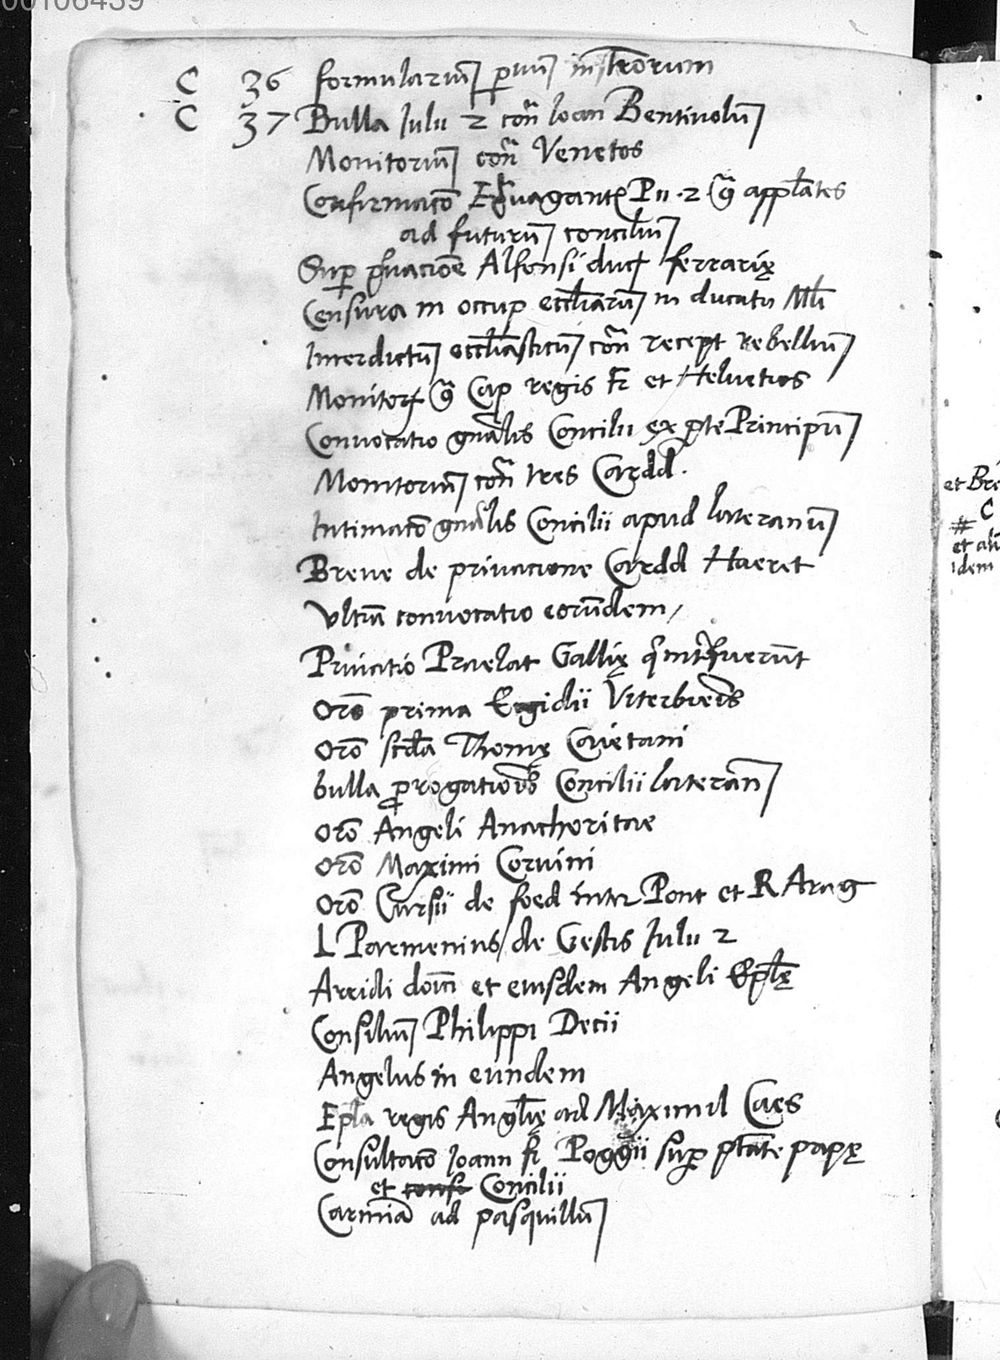 00106439
C 36 formulariu͂ p̱uu͂ instror̃um
C 37 Bulla Julii 2 con͂ Joan Bentiuolu͂
Monitoriu͂ con͂ Venetos
Confirmaco͂ Pii .2 appl̃ates
ad futuru͂ conciliu͂
Sup̱ p̱uacio͂e Alfonsi duc ferrarię
Censura in occup eccl̃iaru͂ in ducatu Ml̃i
Interdictu͂ eccl̃iasticu͂ con͂ recept rebelliu͂
Monitor Cap regis Fr et Heluetios
Conuocatio gn͂alis Concilii ex p̱te Principu͂
Monitoriu͂ con͂ tres Cardd.
Intimaco͂ gn͂alis Concilii apud lateranu͂
Breue de priuacione Cardd Haeret
Vltra͂ conuocatio eorunde͂m/
Priuatio Praelat Gallię q̃ int̃rfueru͂t
Oro͂ prima Egidii Viterbien͂s
Oro͂ scd̃a Thomę Caietani
bulla p̱rogation͂s Concilii lateran͂
Oro͂ Angeli Anachoritae
Oro͂ Maximi Coruini
Oro͂ Cursii de foed inter Pont et R Arag
L Parmenius/de Gestis Julii 2
Arridi dom͂ et eiusdem Angeli Epl̃ę
Consiliu͂ Philippi Decii
Angelus in eundem
Epl̃a regis Angl̃ię ad Maximil Caes
Consultaco͂ Joann fr Poggii sup̱ p̱tãte papę
et Concilii
Carmi͂a ad pasquillu͂
et Bre
C
# et ali
idem